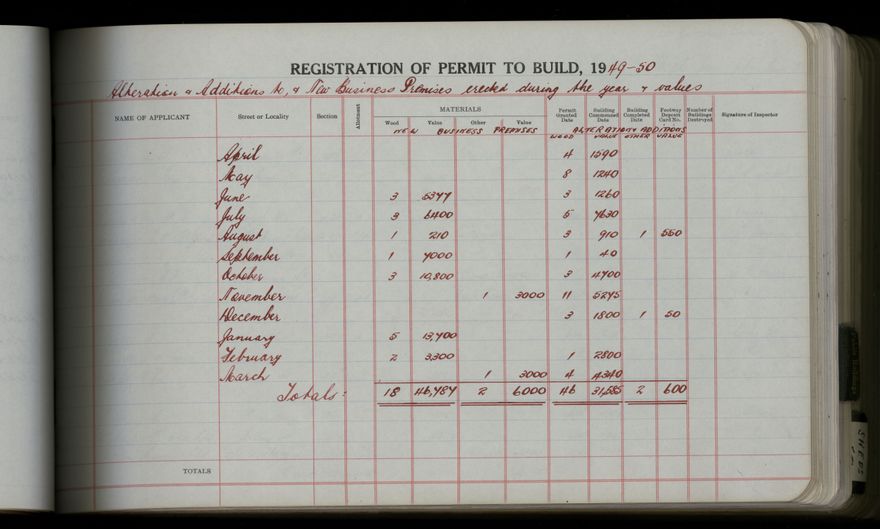 REGISTRATION OF PERMIT TO BUILD, 1949-50
Alteration & Additions to, & New Business Premises erected during the year & values
NAME OF APPLICANT Street or Locality Section Allotment MATERIALS Wood Value Other Value Permit Granted Date Building Commenced Date Building Completed Date Footway Deposit Card No. Number of Buildings Destroyed Signature of Inspector
NEW BUSINESS PREMISES ALTERATION ADDITIONS
WOOD VALUE OTHER VALUE
April 4 1590
May 8 1240
June 3 5377 3 1260
July 3 6400 5 7630
August 1 210 3 910 1 550
September 1 7000 1 40
October 3 10,800 3 4700
November 1 3000 11 5275
December 3 1800 1 50
January 5 13,400
February 2 3,300 1 2800
March 1 3000 4 4340
Totals: 18 46,487 2 6000 46 31,585 2 600
TOTALS